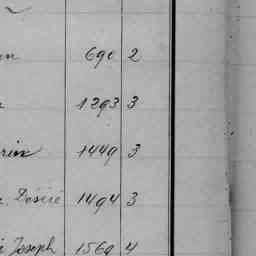 690 2
1293 3
1449 3
Désiré 1494 3
Joseph 1569 4